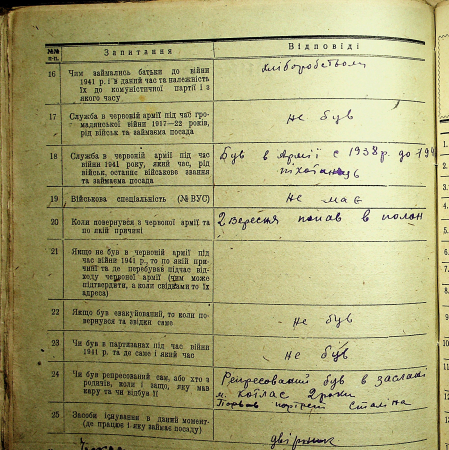 №№ п-п. Запитання Відповіді
16 Чим займались батьки до війни
1941 р. і в даний час та належність
їх до комуністичної партії і з
якого часу
хліборобством
17 Служба в червоній армії під час гро-
мадянської війни 1917—22 років,
рід військ та займаєма посада
не був
18 Служба в червоній армії під час
війни 1941 року, який час, рід
військ, останнє військове звання
та займаєма посада
Був в Армії с 1938 р. до 194
19 Військова спеціальність (№ ВУС)
не має
20 Коли повернувся з червоної армії та
по якій причині
2 Вересня попав в полон
21 Якщо не був в червоній армії під
час війни 1941 р., то по якій при-
чині та де перебував підчас від-
ходу червоної армії (чим може
підтвердити, а коли свідками то їх
адреса)
22 Якщо був евакуйований, то коли по-
вернувся та звідки саме
не був
23 Чи був в партизанах під час війни
1941 р. та де саме і який час
не був
24 Чи був репресований сам, або хто з
родичів, коли і за що, яку мав
кару та чи відбув її
Репресований був в засланні
м. Котлас 2 роки
Порвав портрет Сталіна
25 Засоби існування в даний момент-
(де працює і яку займає посаду)
двірник